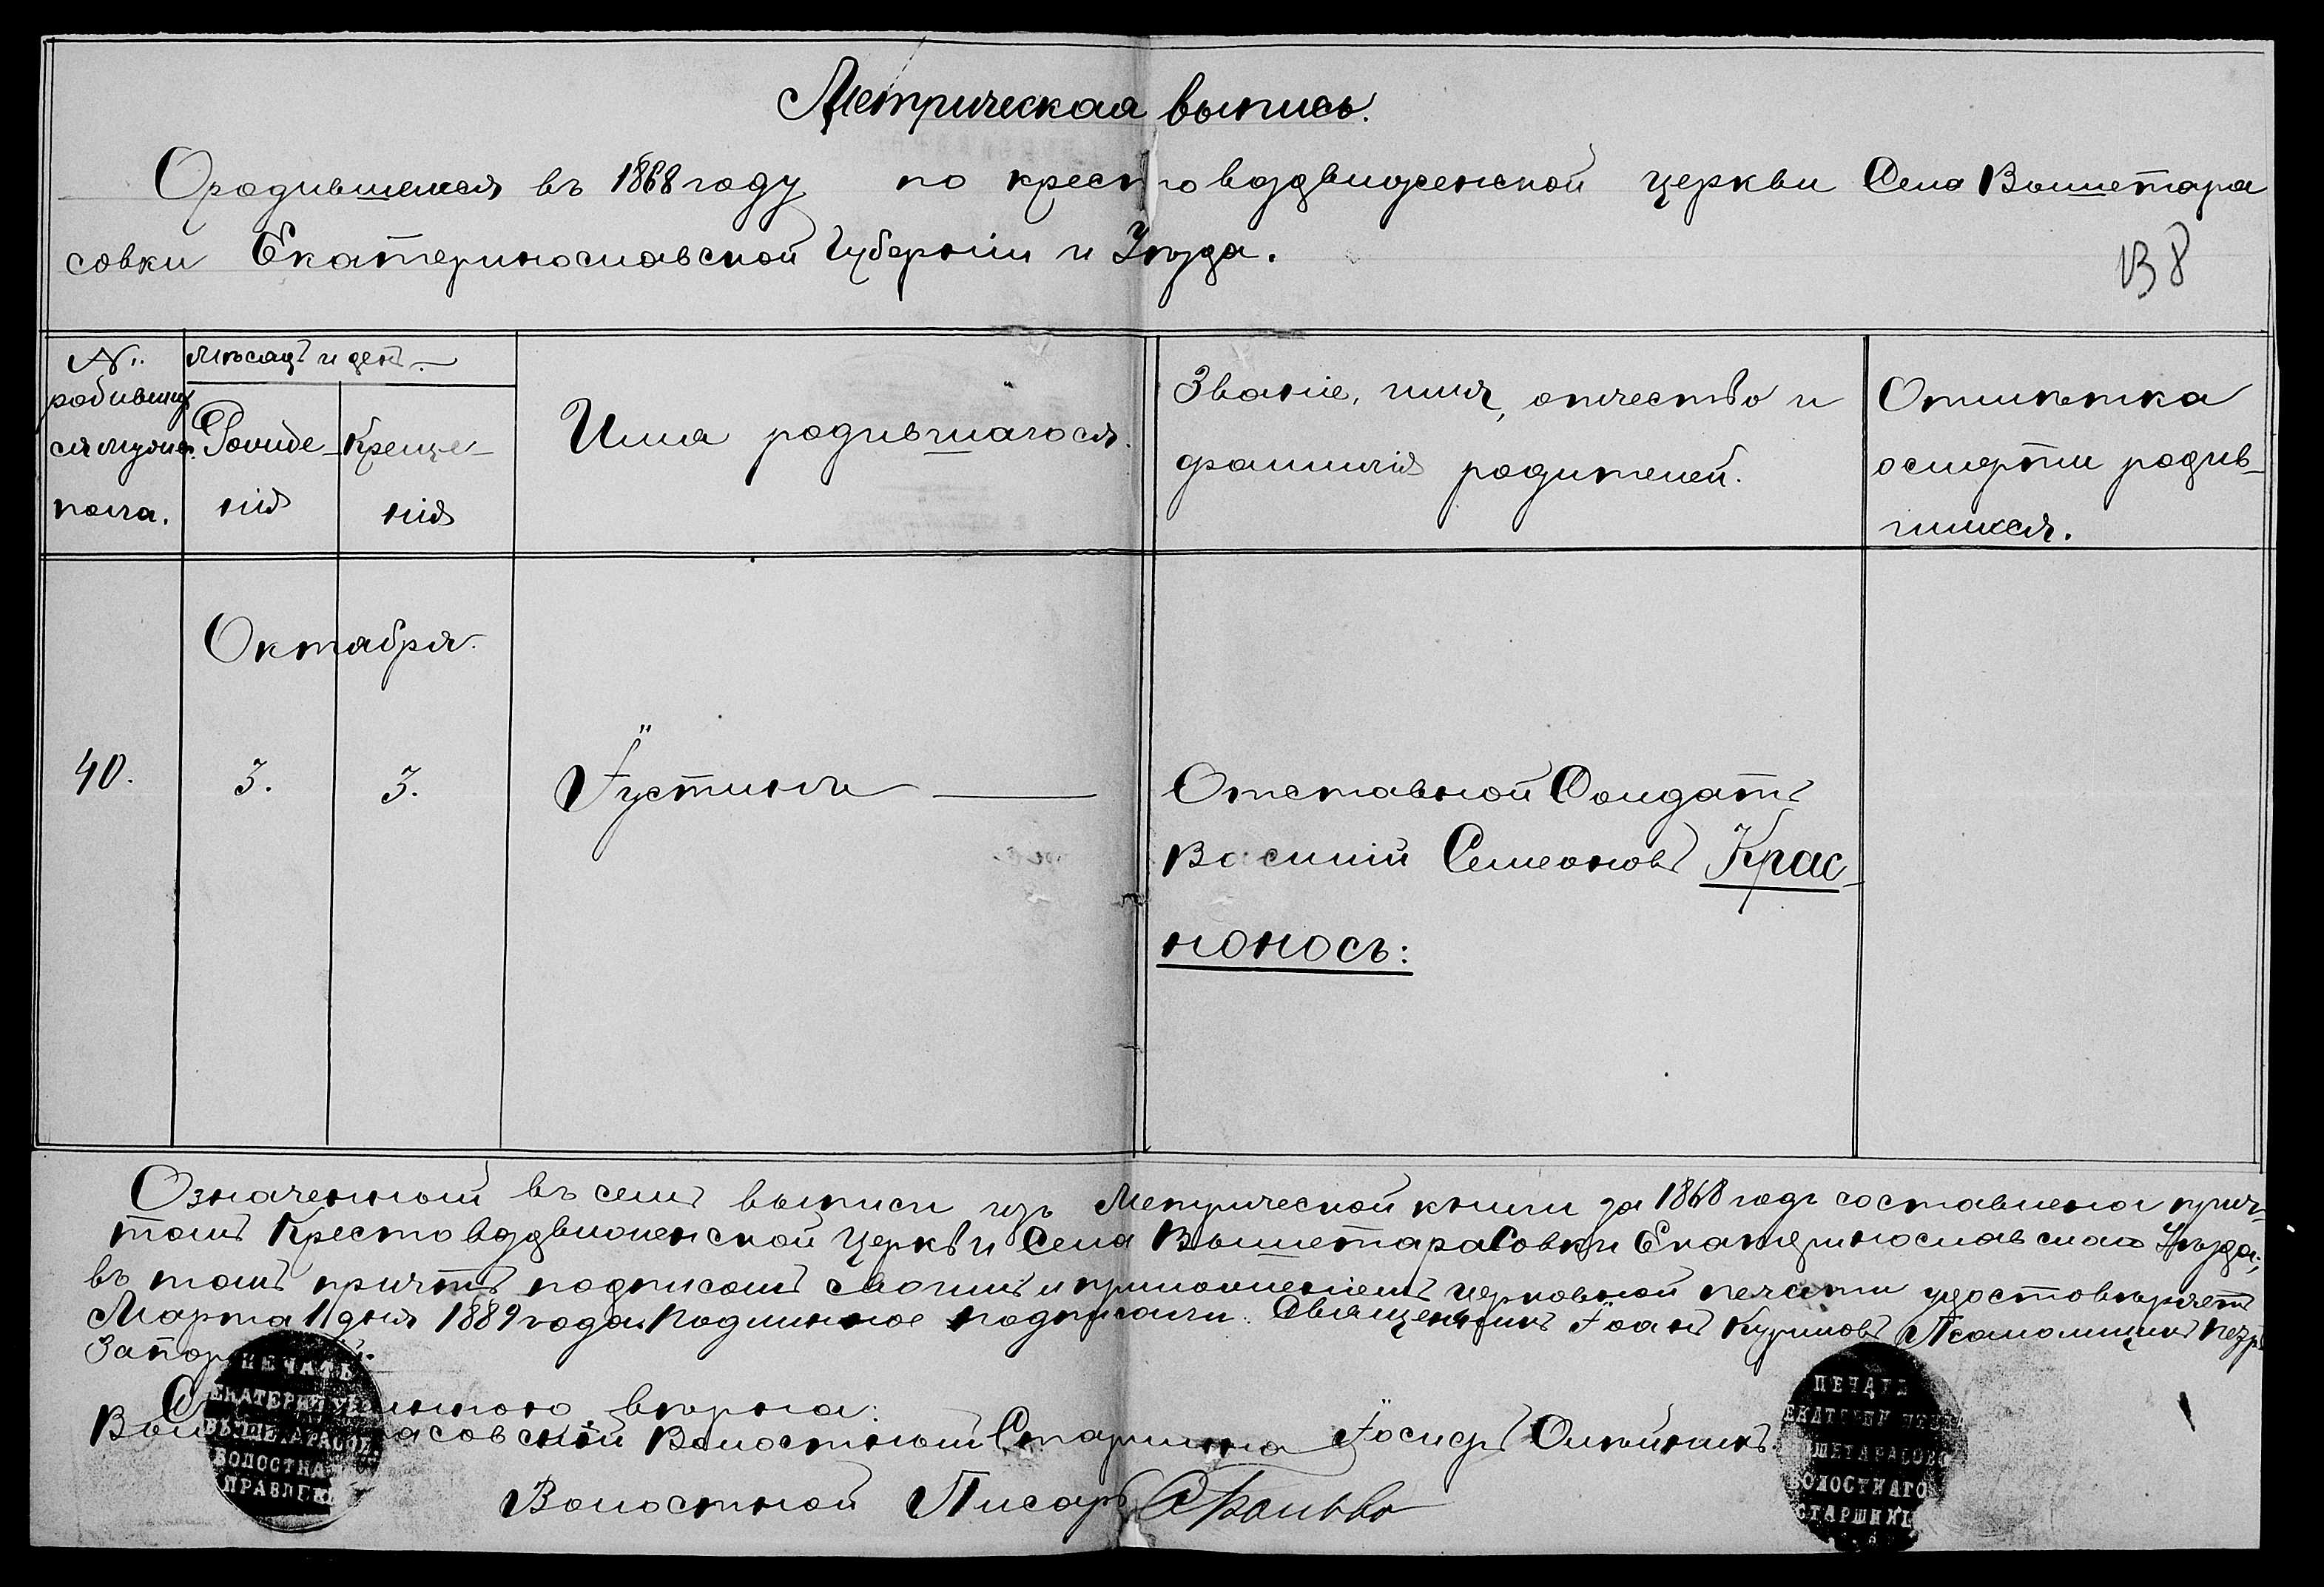 Метрическая выпись.
Ородившемся въ 1868 году по крестовоздвиженской церкви Села Вышетара
совки Екатеринославской Губерніи и Уѣзда.
138
№
родивших
ся мужес.
пола.
мѣсяцъ и день
Рожде-
нія
Креще-
нія
Имя родившагося.
Званіе, имя, отчество и
фамилія родителей.
Отмѣтка
осмерти родив-
шихся.
Октября.
40.
3.
3.
Іустинъ
Отставной Солдатъ
Василій Семеоновъ Крас-
ноносъ:
Означенный въ семъ выписи изъ Метрической книги за 1868 годъ составлена прич-
томъ Крестовоздвиженской Церкви Села ВышетараСовки Екатеринославскаго Уѣзда;
въ томъ причтъ подписомъ своимъ и приложеніемъ церковной печати удостовѣряетъ
Марта 11 дня 1889 года. Подлинное подписали: Священникъ Іоанъ Куриловъ Псаломщикъ
Запор
вѣрна:
Волостный Старшина Іосифъ Олѣйникъ.
Волостной Писарь
ПЕЧАТЬ
ЕКАТЕРИН. УѢ
ВЫШЕТАРАСОВ.
ВОЛОСТНА
ПРАВЛЕН
ПЕЧАТЬ
ЕКАТЕРИН
ВЫШЕТАРАСОВС
ВОЛОСТНАГО
СТАРШИНЫ